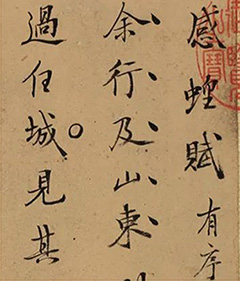 感蝗賦有序
余行及山東
過任城見其